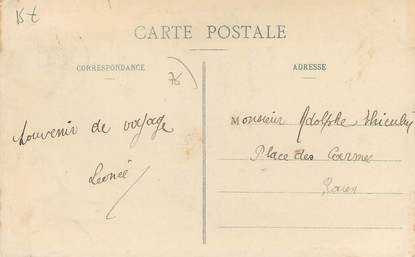 15 t
CARTE POSTALE
CORRESPONDANCE
76
ADRESSE
Souvenir de voyage
Leonie
Monsieur Adolphe
Place des Carmes
Rouen